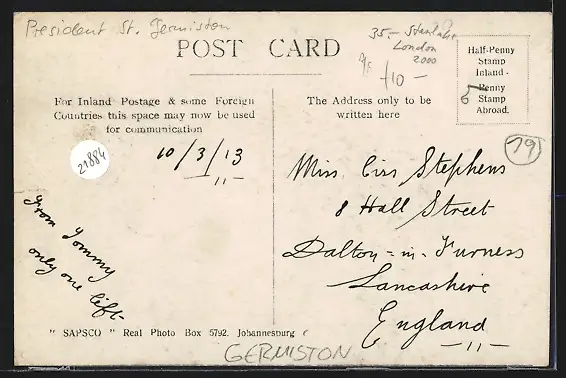 President St. Germiston
POST CARD
35.-
London
2000
+10-
Half-Penny
Stamp
Inland -
Penny
Stamp
Abroad.
5
For Inland Postage & some Foreign
Countries this space may now be used
for communication
The Address only to be
written here
19
21884
10/3/13
Miss Ciss Stephens
8 Hall Street
Dalton-in-Furness
Lancashire
England
From Tommy
only one left
" SAPSCO " Real Photo Box 5792. Johannesburg
GERMISTON